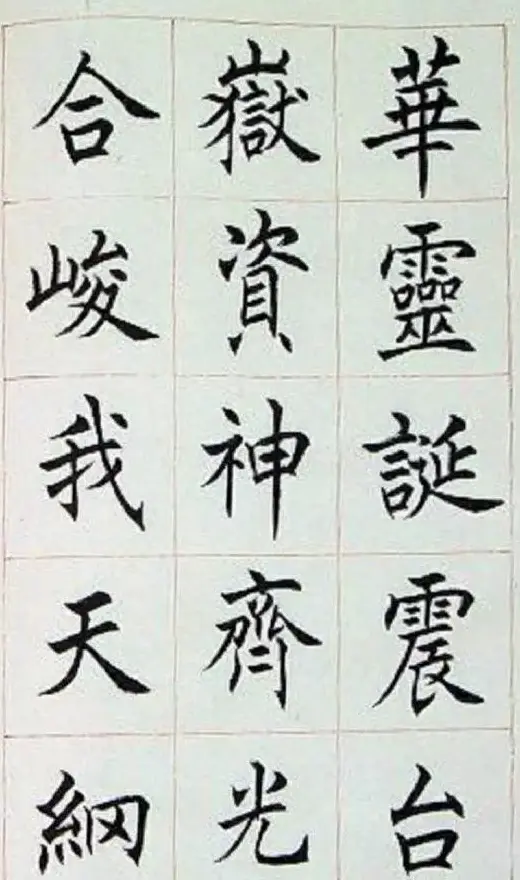 華靈誕震台
嶽資神齊光
合峻我天綱